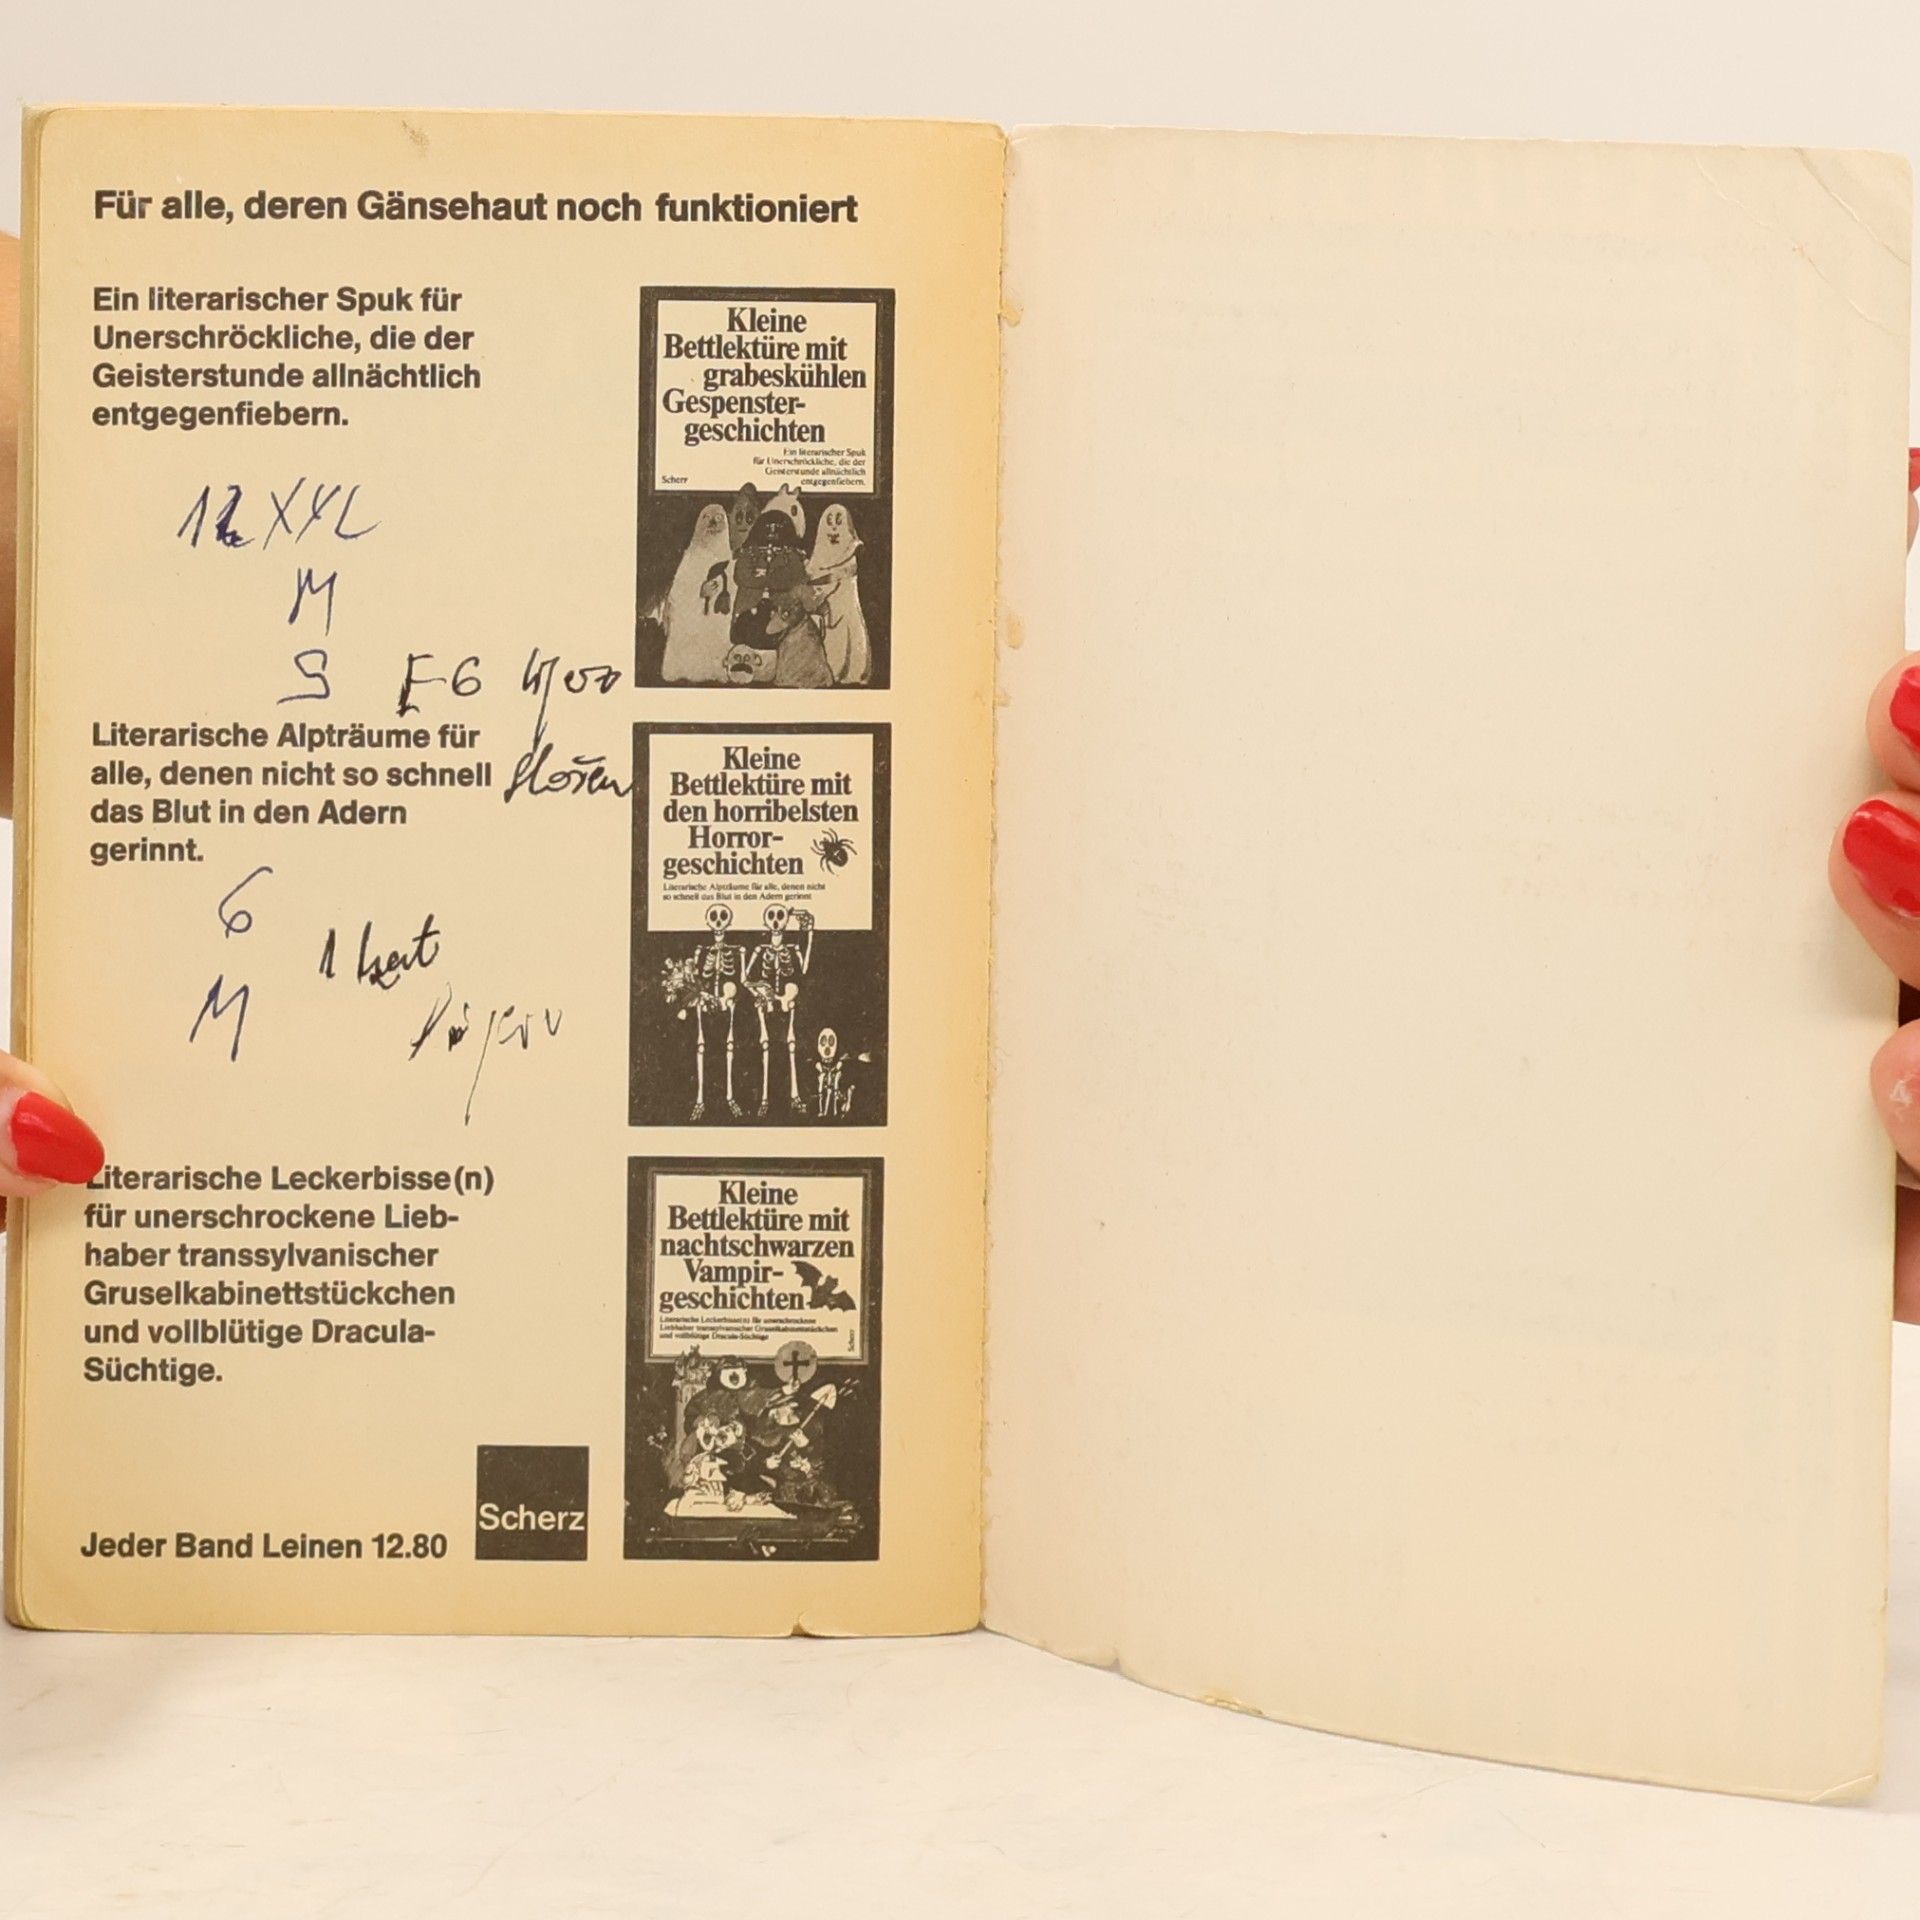 Für alle, deren Gänsehaut noch funktioniert
Ein literarischer Spuk für
Unerschröckliche, die der
Geisterstunde allnächtlich
entgegenfiebern.
Kleine
Bettlektüre mit
grabeskühlen
Gespenster-
geschichten
Ein literarischer Spuk
für Unerschröckliche, die der
Geisterstunde allnächtlich
entgegenfiebern.
Scherz
XXL
M
S
E6
Literarische Alpträume für
alle, denen nicht so schnell
das Blut in den Adern
gerinnt.
Kleine
Bettlektüre mit
den horribelsten
Horror-
geschichten
Literarische Alpträume für alle, denen nicht
so schnell das Blut in den Adern gerinnt
6
M
1
Literarische Leckerbisse(n)
für unerschrockene Lieb-
haber transsylvanischer
Gruselkabinettstückchen
und vollblütige Dracula-
Süchtige.
Kleine
Bettlektüre mit
nachtschwarzen
Vampir-
geschichten
Literarische Leckerbisse(n) für unerschrockene
Liebhaber transsylvanischer Gruselkabinettstückchen
und vollblütige Dracula-Süchtige
Scherz
Scherz
Jeder Band Leinen 12.80